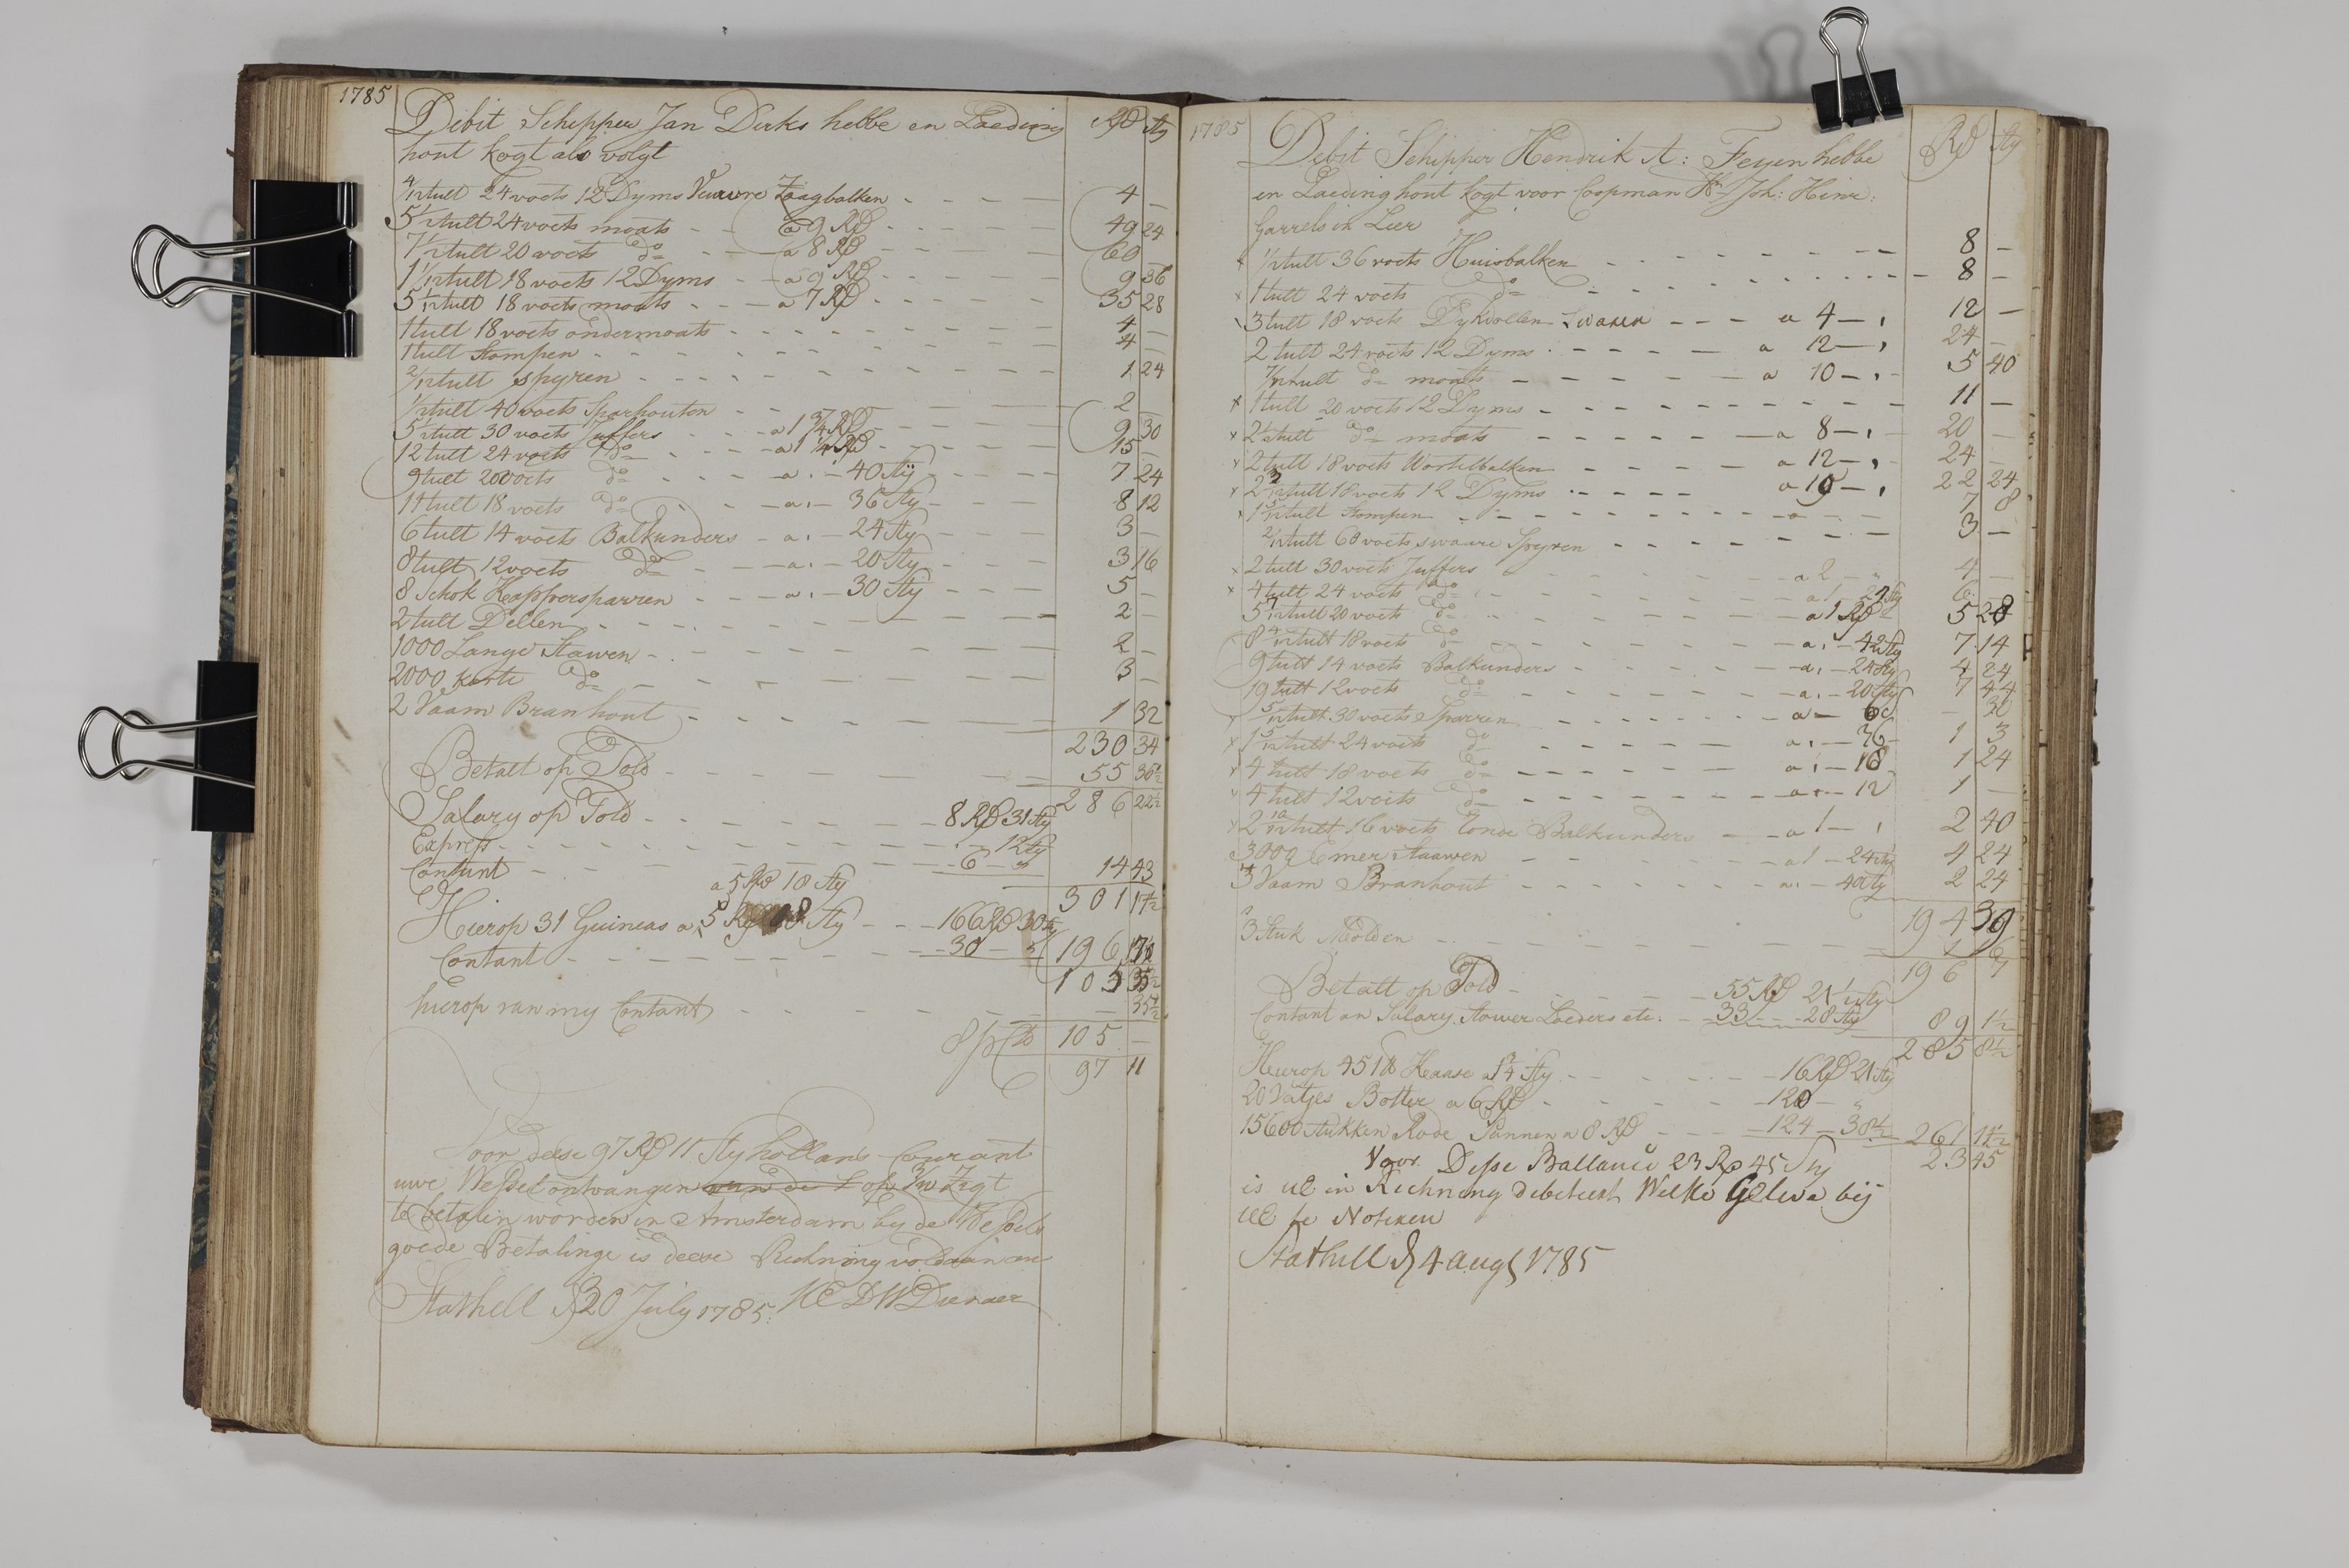 1785
Debit Schipper Jan Dirks hebbe en Laeding Rd Sty
hout kogt als volgt
4/12 tult 24 voets 12 Dyms Vuure Zaagbalken 4 —
5 1/2 tult 24 voets moats a 9 Rd 49 24
7 1/2 tult 20 voets do a 8 Rd 60 —
1 1/12 tult 18 voets 12 Dyms a 9 Rd 9 36
5 1/12 tult 18 voets moats a 7 Rd 35 28
1 tult 18 voets ondermoats 4 —
1 tult Stompen 4 —
2/12 tult spyren 1 24
1/2 tult 40 voets Sparhouten 2
5 1/2 tult 30 voets Juffers a 1 3/4 Rd 9 30
12 tult 24 voets do a 1 1/4 Rd 15 —
9 tult 20 voets do a — 40 Sty 7 24
11 tult 18 voets do a — 36 Sty 8 12
6 tult 14 voets Balkunders a — 24 Sty 3 —
8 tult 12 voets do a — 20 Sty 3 16
8 Schok Kappersparren a — 30 Sty 5 —
2 tult Dellen 2 —
1000 Lange Stawen 2 —
2000 korte do 3 —
2 Vaam Branhout 1 32
230 34
Betalt op Told 55 36 1/2
286 22 1/2
Salary op Told 8 Rd 31 Sty
Express — 12 Sty
Contant 6 — 14 43
a 5 Rd 18 Sty 301 17 1/2
Hierop 31 Guineas a 5 Rd Sty 166 Rd 30 Sty
Contant 30 — 196
35 1/2
hierop van my Contant — 35 1/2
105 —
97 11
Voor deese 97 Rd 11 Sty hollans Courant
uwe Wessel ontvangen op Zigt
te betalen worden in Amsterdam by de Wessels
goede Betalinge is deese Richning voldaan
Stathell d 20 July 1785
1785
Debit Schipper Hendrik A: Feyen hebbe Rd Sty
en Laeding hout kogt voor Coopman Hr Joh: Hinr:
Garrels in Leer
1/2 tult 36 voets Huisbalken 8 —
1 tult 24 voets do 8 —
3 tult 18 voets Dykdollen Swaren a 4 — 12 —
2 tult 24 voets 12 Dyms a 12 — 24 —
7/12 tult do moats a 10 — 5 40
1 tult 20 voets 12 Dyms 11 —
2 1/2 tult do moats a 8 — 20 —
2 tult 18 voets Wortelbalken a 12 — 24 —
2 3/12 tult 18 voets 12 Dyms a 10 — 22 24
1 5/12 tult Stompen 7 8
2/12 tult 60 voets swaare Spyren 3 —
2 tult 30 voets Juffers a 2 — 4 —
4 tult 24 voets do a 1 — 24 Sty 6 —
5 7/12 tult 20 voets do a 1 Rd 5 28
8 4/12 tult 18 voets do a — 42 Sty 7 14
9 tult 14 voets Balkunders a — 24 Sty 4 24
19 tult 12 voets do a — 20 Sty 7 44
5/12 tult 30 voets Sparren a — 60
1 5/12 tult 24 voets do a — 36 1 3
4 tult 18 voets do a — 18 1 24
4 tult 12 voets do a — 12 1 —
2 10/12 tult 16 voets Ronde Balkunders a 1 — 2 40
3000 Emer Staawen a 1 — 24 Sty 4 24
3 Vaam Branhout a — 40 Sty 2 24
194 39
3 Stuk Molden
196 7
Betalt op Told 55 Rd 21 1/2 Sty
Contant an Salary Stower Loeders etc: 33 — 28 Sty 89 1 1/2
285 8 1/2
Hierop Kaase Sty 16 Rd 21 Sty
20 Vatjes Botter a 6 Rd 120 —
15600 stukken Rode Pannen a 8 Rd 124 — 38 1/2 261 11 1/2
23 45
Voor Desse Ballance 23 Rd 45 Sty
is uE in Richning debiteert Welke Gelieve bij
uE te Noteren
Stathell d 4 aug 1785